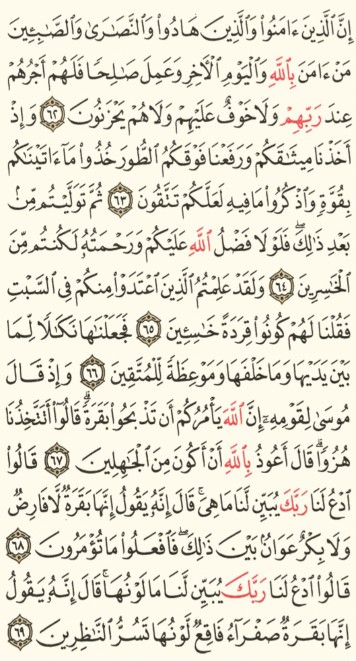 إِنَّ ٱلَّذِينَ ءَامَنُواْ وَٱلَّذِينَ هَادُواْ وَٱلنَّصَٰرَىٰ وَٱلصَّٰبِـِٔينَ
مَنْ ءَامَنَ بِٱللَّهِ وَٱلْيَوْمِ ٱلْأٓخِرِ وَعَمِلَ صَٰلِحًا فَلَهُمْ أَجْرُهُمْ
عِندَ رَبِّهِمْ وَلَا خَوْفٌ عَلَيْهِمْ وَلَا هُمْ يَحْزَنُونَ ٦٢ وَإِذْ
أَخَذْنَا مِيثَٰقَكُمْ وَرَفَعْنَا فَوْقَكُمُ ٱلطُّورَ خُذُواْ مَآ ءَاتَيْنَٰكُم
بِقُوَّةٍ وَٱذْكُرُواْ مَا فِيهِ لَعَلَّكُمْ تَتَّقُونَ ٦٣ ثُمَّ تَوَلَّيْتُم مِّنۢ
بَعْدِ ذَٰلِكَ ۖ فَلَوْلَا فَضْلُ ٱللَّهِ عَلَيْكُمْ وَرَحْمَتُهُۥ لَكُنتُم مِّنَ
ٱلْخَٰسِرِينَ ٦٤ وَلَقَدْ عَلِمْتُمُ ٱلَّذِينَ ٱعْتَدَوْاْ مِنكُمْ فِى ٱلسَّبْتِ
فَقُلْنَا لَهُمْ كُونُواْ قِرَدَةً خَٰسِـِٔينَ ٦٥ فَجَعَلْنَٰهَا نَكَٰلًا لِّمَا
بَيْنَ يَدَيْهَا وَمَا خَلْفَهَا وَمَوْعِظَةً لِّلْمُتَّقِينَ ٦٦ وَإِذْ قَالَ
مُوسَىٰ لِقَوْمِهِۦٓ إِنَّ ٱللَّهَ يَأْمُرُكُمْ أَن تَذْبَحُواْ بَقَرَةً ۖ قَالُوٓاْ أَتَتَّخِذُنَا
هُزُوًا ۖ قَالَ أَعُوذُ بِٱللَّهِ أَنْ أَكُونَ مِنَ ٱلْجَٰهِلِينَ ٦٧ قَالُواْ
ٱدْعُ لَنَا رَبَّكَ يُبَيِّن لَّنَا مَا هِىَ ۚ قَالَ إِنَّهُۥ يَقُولُ إِنَّهَا بَقَرَةٌ لَّا فَارِضٌ
وَلَا بِكْرٌ عَوَانٌۢ بَيْنَ ذَٰلِكَ ۖ فَٱفْعَلُواْ مَا تُؤْمَرُونَ ٦٨
قَالُواْ ٱدْعُ لَنَا رَبَّكَ يُبَيِّن لَّنَا مَا لَوْنُهَا ۚ قَالَ إِنَّهُۥ يَقُولُ
إِنَّهَا بَقَرَةٌ صَفْرَآءُ فَاقِعٌ لَّوْنُهَا تَسُرُّ ٱلنَّٰظِرِينَ ٦٩